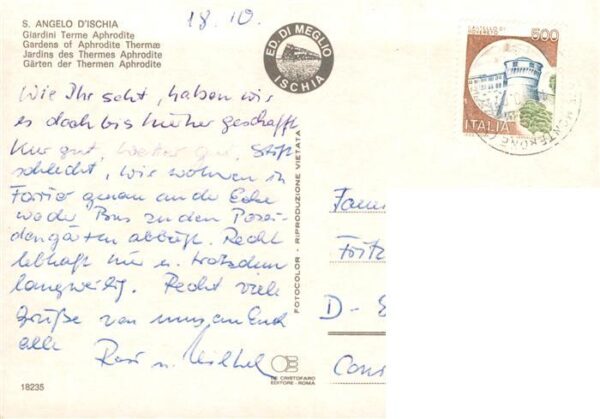 S. ANGELO D'ISCHIA
Giardini Terme Aphrodite
Gardens of Aphrodite Thermæ
Jardins des Thermes Aphrodite
Gärten der Thermen Aphrodite
18.10.
ED. DI MEGLIO
ISCHIA
CASTELLO DI
ROVERETO
500
ITALIA
Wie Ihr seht, haben wir
es doch bis hierher geschafft
Kur gut, Wetter gut, Stift
schlecht, wir wohnen in
Forio genau an der Ecke
wo der Bus zu den Posei-
dongärten abbiegt. Recht
lebhaft hier u. trotzdem
langweilig. Recht viele
Grüße von uns an Euch
alle
Rosi u.
FOTOCOLOR - RIPRODUZIONE VIETATA
Fritz
D-
DE CRISTOFARO
EDITORE - ROMA
18235